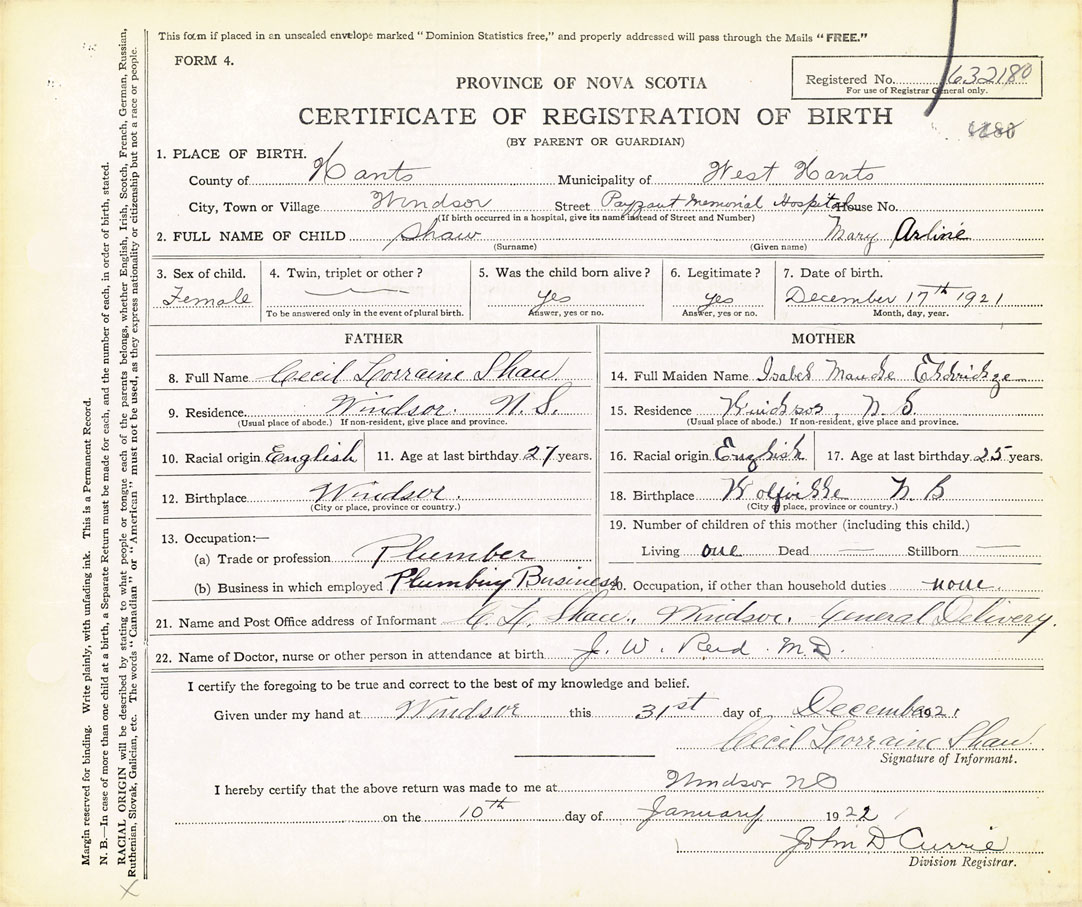 This form if placed in an unsealed envelope marked "Dominion Statistics free," and properly addressed will pass through the Mails "FREE."
FORM 4.
Registered No. 632180
For use of Registrar General only.
PROVINCE OF NOVA SCOTIA
CERTIFICATE OF REGISTRATION OF BIRTH
(BY PARENT OR GUARDIAN)
1. PLACE OF BIRTH.
County of Hants Municipality of West Hants
City, Town or Village Windsor Street Payzant Memorial Hospital House No.
(If birth occurred in a hospital, give its name instead of Street and Number)
2. FULL NAME OF CHILD Shaw Mary Arline
(Surname) (Given name)
3. Sex of child. 4. Twin, triplet or other? 5. Was the child born alive? 6. Legitimate? 7. Date of birth.
Female yes yes December 17th 1921
To be answered only in the event of plural birth. Answer, yes or no. Answer, yes or no. Month, day, year.
FATHER
8. Full Name Cecil Lorraine Shaw
9. Residence Windsor. N.S.
(Usual place of abode.) If non-resident, give place and province.
10. Racial origin English 11. Age at last birthday 27 years.
12. Birthplace Windsor.
(City or place, province or country.)
13. Occupation:—
(a) Trade or profession Plumber
(b) Business in which employed Plumbing Business
MOTHER
14. Full Maiden Name Isabel Maude
15. Residence Windsor, N.S.
(Usual place of abode.) If non-resident, give place and province.
16. Racial origin English 17. Age at last birthday 25 years.
18. Birthplace Wolfville N B
(City or place, province or country.)
19. Number of children of this mother (including this child.)
Living one Dead — Stillborn —
20. Occupation, if other than household duties none.
21. Name and Post Office address of Informant C. L. Shaw, Windsor. General Delivery.
22. Name of Doctor, nurse or other person in attendance at birth J. W. Reid M.D.
I certify the foregoing to be true and correct to the best of my knowledge and belief.
Given under my hand at Windsor this 31st day of December 1921
Cecil Lorraine Shaw.
Signature of Informant.
I hereby certify that the above return was made to me at Windsor NS
on the 10th day of January 1922
John D Currie
Division Registrar.
Margin reserved for binding. Write plainly, with unfading ink. This is a Permanent Record.
N. B.—In case of more than one child at a birth, a Separate Return must be made for each, and the number of each, in order of birth, stated.
RACIAL ORIGIN will be described by stating to what people or tongue each of the parents belongs, whether English, Irish, Scotch, French, German, Russian,
Ruthenian, Slovak, Galician, etc. The words "Canadian" or "American" must not be used, as they express nationality or citizenship but not a race or people.
X